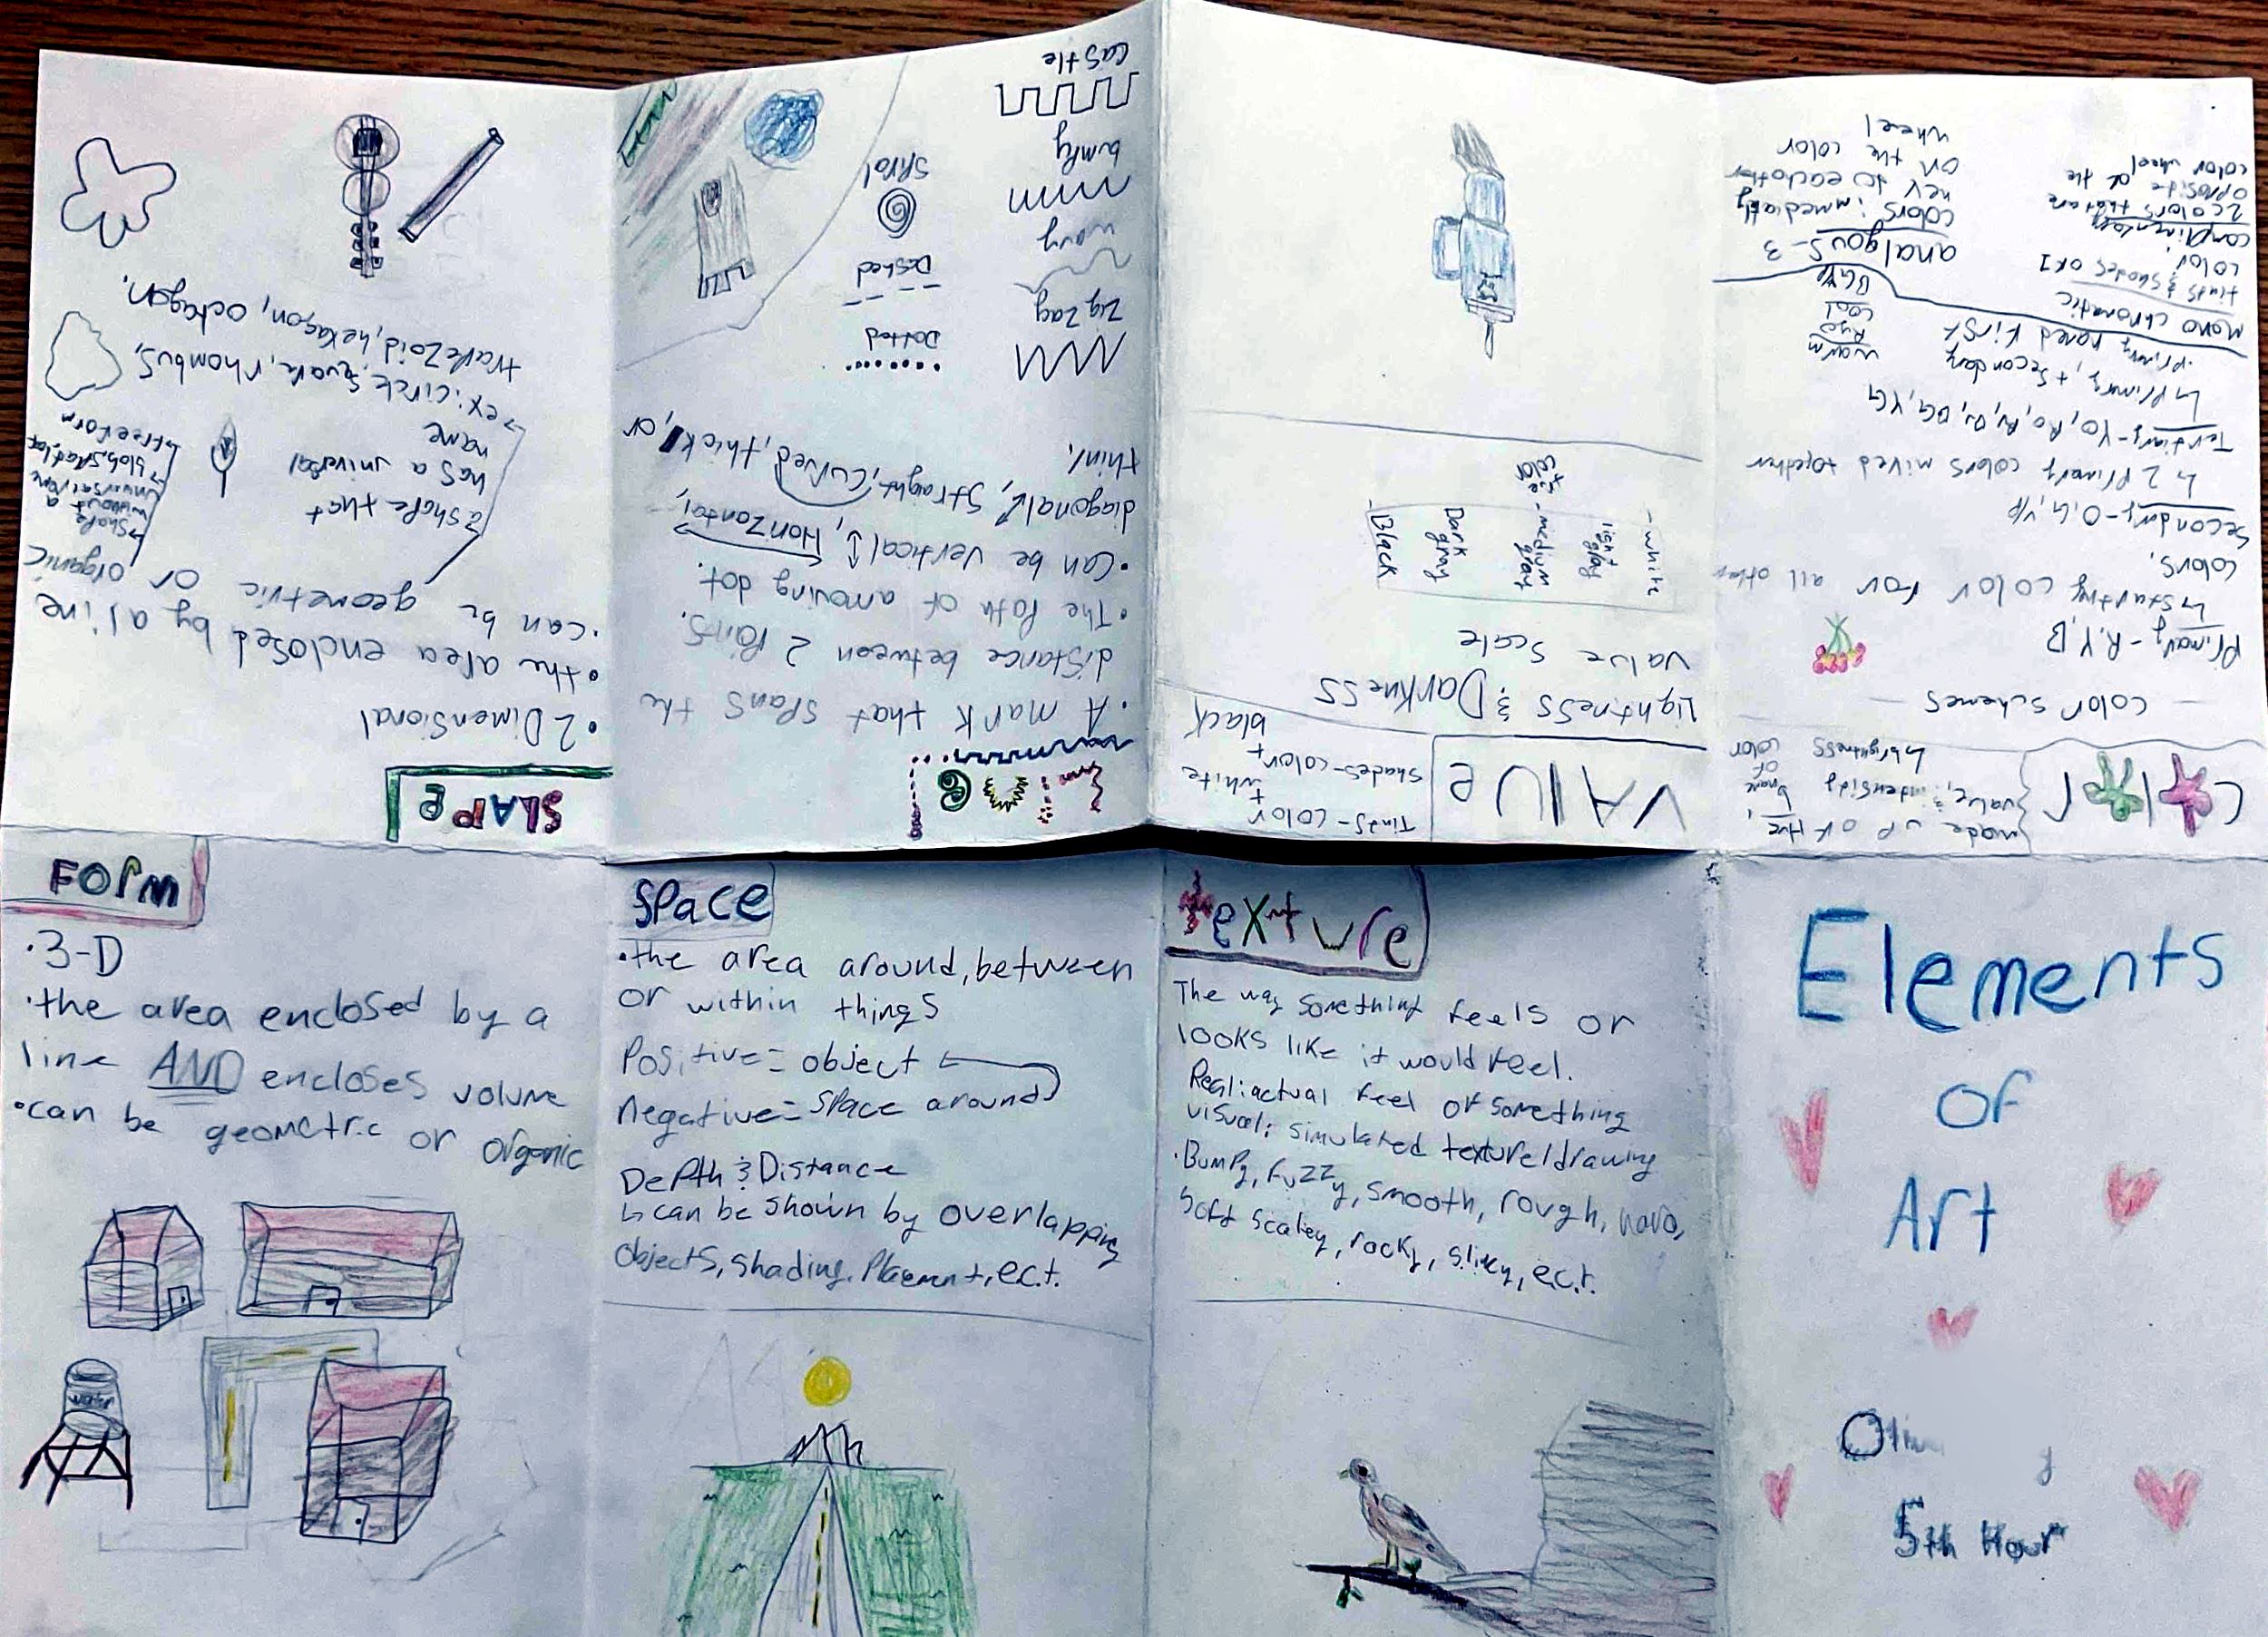 Elements
of
Art
5th Hour
Color
made up of Hue,
value, & intensity
brightness
of
color
name
color schemes
Primary - R, Y, B
↳ starting color for all other
colors.
Secondary - O, G, V/P
↳ 2 Primary colors mixed together
Tertiary - YO, RO, RV, BV, BG, YG
↳ Primary + Secondary
• Primary named first
warm
RYO
cool
BGV/P
Mono chromatic
tints & shades of 1
color.
complimentary
2 colors that are
oposite on the
color wheel
analgous - 3
colors immediatly
next to eachother
on the color
wheel
VAlUe
Tints - color
+
white
shades - color +
black
Lightness & Darkness
value scale
- white
light gray
- medium gray
Dark gray
Black
true color
• A mark that spans the
distance between 2 Points.
• The Path of a moving dot.
• Can be vertical ↕, Horizontal,
diagonal, straight, curved, thick, or
thin.
zig zag
wavy
bumpy
castle
Dotted
Dashed
sprial
SHAPE
• 2 Dimensional
• the area enclosed by a line
• can be geometric or organic
→ a shape that
has a universal
name
→ ex: circle, square, rhombus,
trapezoid, hexagon, octagon.
→ shape
without a
universal name
→ blob, splatter
↳ freeform
Form
• 3-D
• the area enclosed by a
line AND encloses volume
• can be geometric or organic
water
Space
• the area around, between
or within things
Positive = object
Negative = space around
Depth & Distance
↳ can be shown by overlapping
objects, shading, Placemnt, ec.t.
texture
The way something feels or
looks like it would feel.
Real: actual feel of something
visual: simulated texture/drawing
• Bumpy, fuzzy, smooth, rough, hard,
soft scaley, rocky, slimy, ec.t.